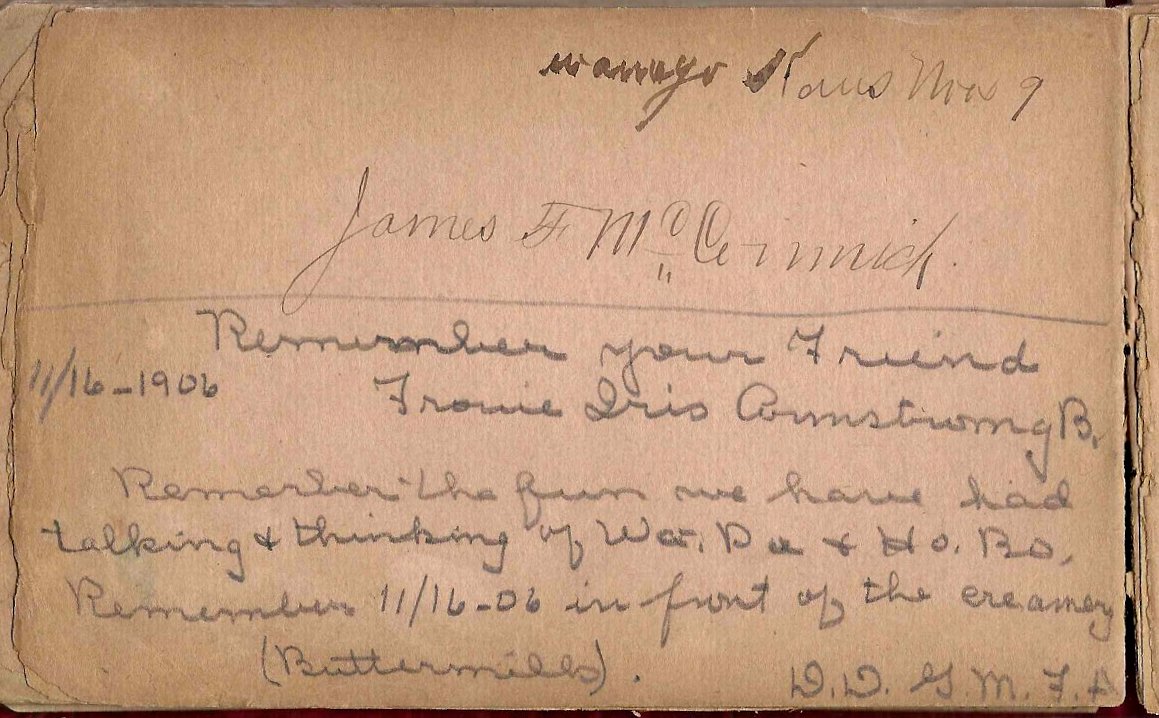 Kans Nov 9
James F McCormick
Remember your Friend
11/16-1906 Fronie Iris Armstrong B.
Remember the fun we have had
talking & thinking of Wat. Da & Ho. Bo.
Remember 11/16-06 in front of the creamery
(Buttermilk).
D.D. G.M.F.A